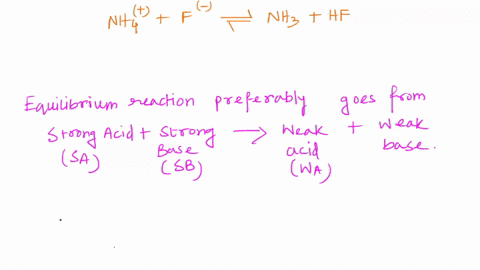 NH₄⁽⁺⁾ + F⁽⁻⁾ ⇌ NH₃ + HF
Equilibrium reaction preferably goes from
Strong Acid + Strong → Weak + Weak
Base acid base.
(SA) (SB) (WA)